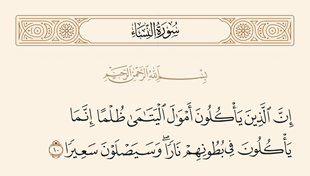 سُورَةُ النِّسَاءِ
بِسْمِ اللَّهِ الرَّحْمَٰنِ الرَّحِيمِ
إِنَّ الَّذِينَ يَأْكُلُونَ أَمْوَٰلَ الْيَتَٰمَىٰ ظُلْمًا إِنَّمَا
يَأْكُلُونَ فِي بُطُونِهِمْ نَارًا ۖ وَسَيَصْلَوْنَ سَعِيرًا ١٠